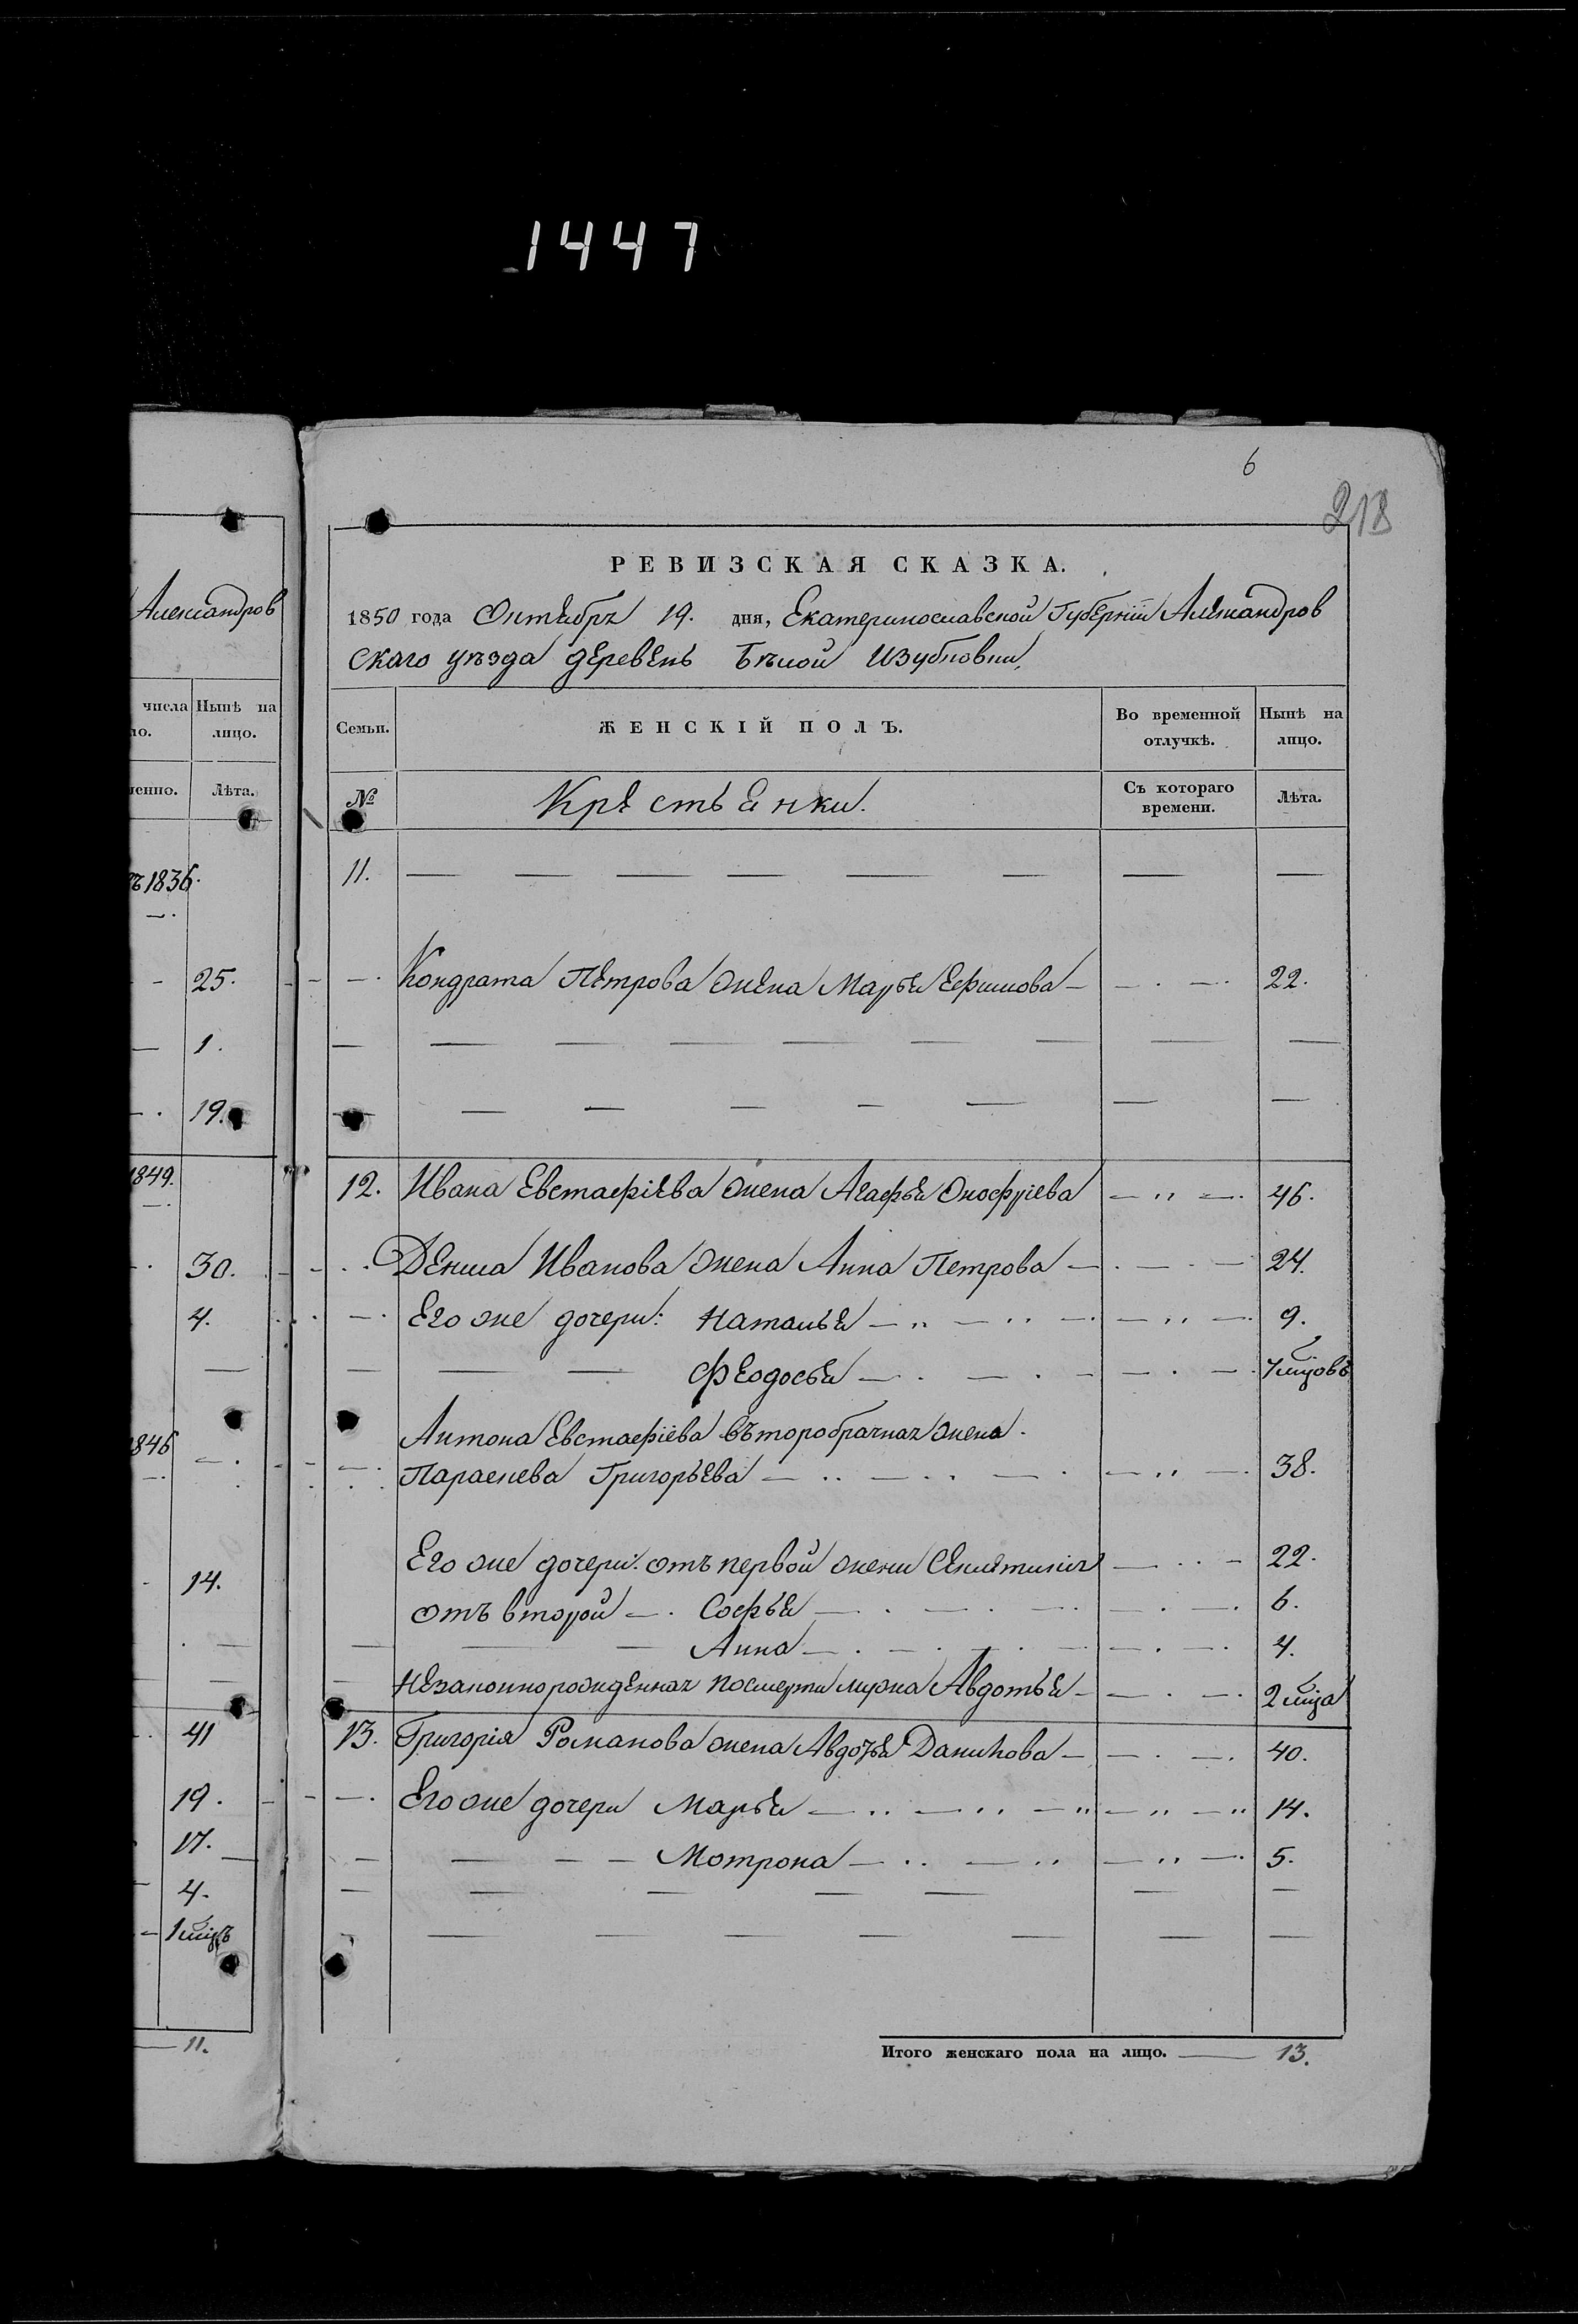 1447
6
218
Александров
числа Нынѣ на
но. лицо.
менно. Лѣта.
ъ 1836.
25.
1.
19.
1849.
30.
4.
1846
14.
41
19.
17.
4.
1 мцъ
11.
РЕВИЗСКАЯ СКАЗКА.
1850 года Октября 19. дня, Екатеринославской Губерніи Александров
скаго уѣзда деревень Бѣлой
Семьи. ЖЕНСКІЙ ПОЛЪ. Во временной отлучкѣ. Нынѣ на лицо.
№ Крестьянки. Съ котораго времени. Лѣта.
11. — — — — — — — —
Кондрата Петрова жена Марья Ефимова — — . — . 22.
— — — — — — — — —
— — — — — — — —
12. Ивана Евстафіева жена Агафья Онофріева — „ — . 46.
Дениса Иванова жена Анна Петрова — . — . — 24.
Его же дочери: Наталья — „ — „ — . — „ — . 9.
— — — Феодосья — . — . — — . — . 7 мцовъ
Антона Евстафіева второбрачная жена.
Параскева Григорьева — „ — „ — . — „ — . 38.
Его же дочери: отъ первой жени — . . — 22.
отъ второй — . Софья — . — . — . — . — . 6.
— — — Анна — . — . — . — — . — . 4.
— Незаконнорожденная посмерти мужа Авдотья — — . — . 2 мца
13. Григорія Романова жена Авдотья Данилова — — . — . 40.
Его же дочери Марья — „ — „ — „ — „ — „ 14.
— — — — Мотрона — „ — „ — „ — . 5.
— — — — — — —
— — — — — — — —
Итого женскаго пола на лицо. — 13.